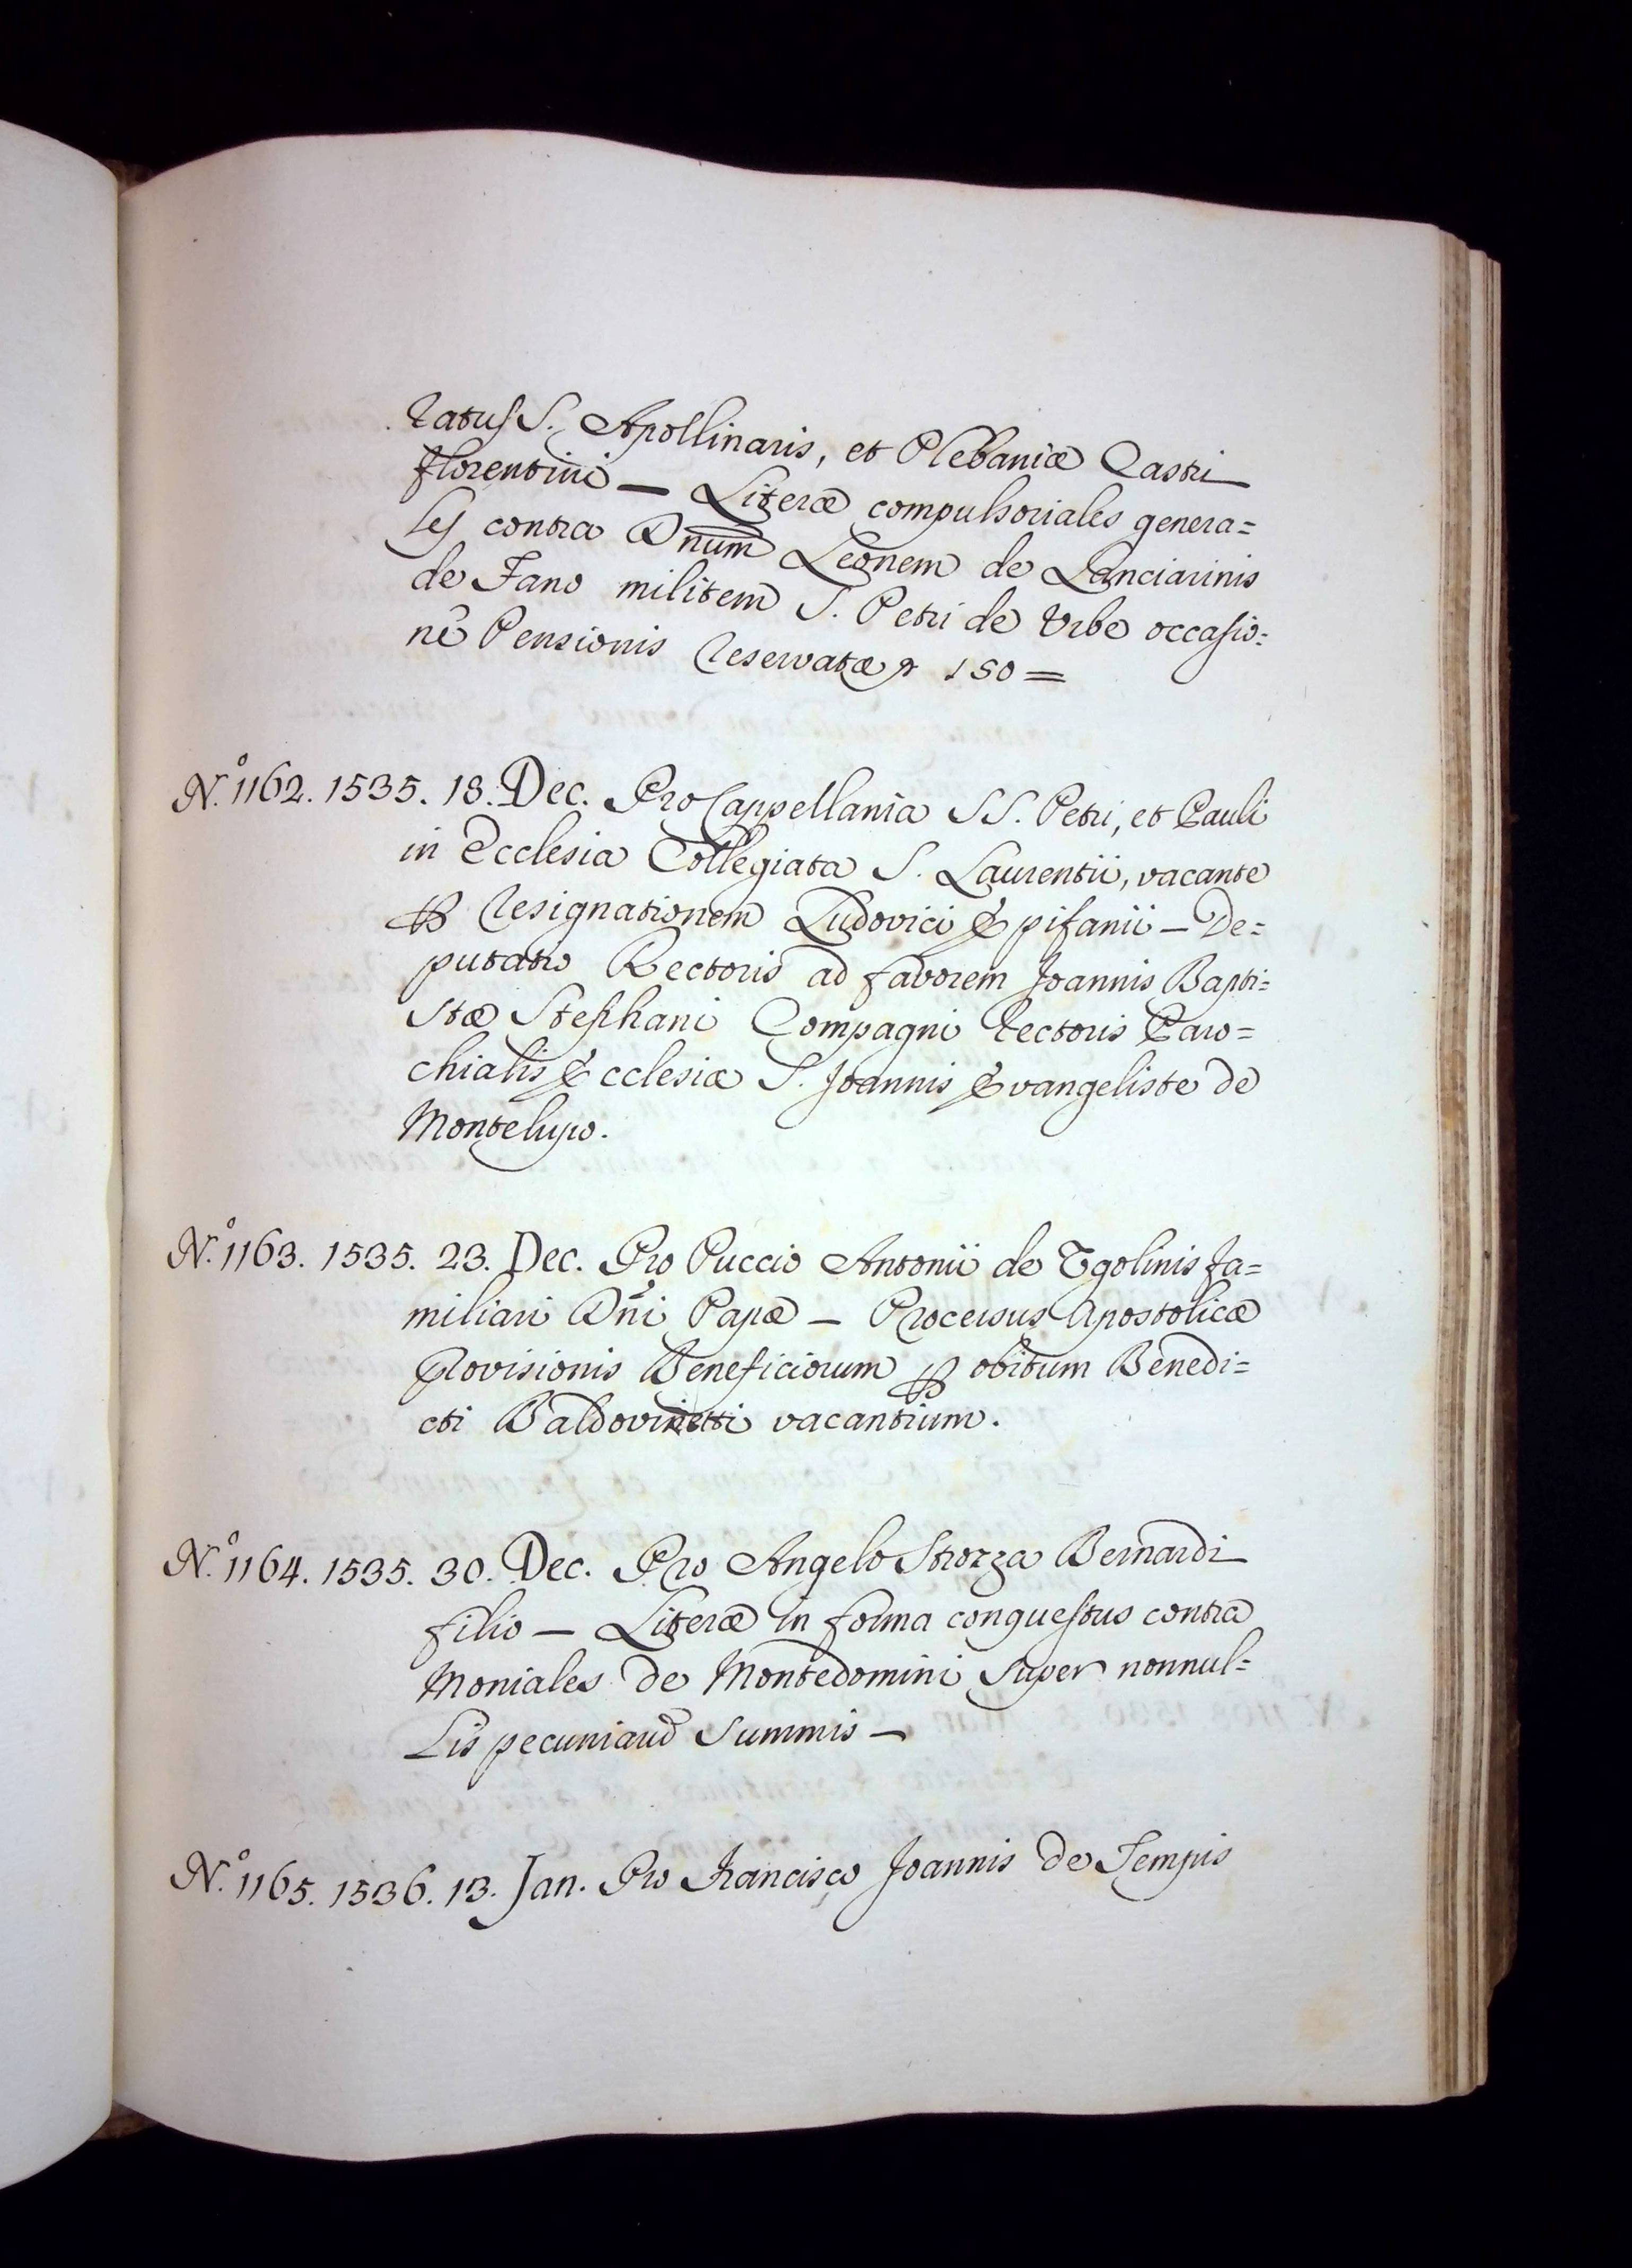 ratus S. Apollinaris, et Plebaniæ Castri
florentini — Literæ compulsoriales genera=
les contra Dnum Leonem de Lanciarinis
de Fano militem S. Petri de Urbe occasio=
nē Pensionis reservatæ 150=
N.º 1162. 1535. 18. Dec. Pro Cappellania SS. Petri, et Pauli
in Ecclesia Collegiata S. Laurentii, vacante
ꝑ resignationem Ludovici Epifanii — De=
putatio Rectoris ad favorem Joannis Bapti=
stæ Stephani Compagni rectoris Paro=
chialis Ecclesiæ S. Joannis Evangeliste de
Montelupo.
N.º 1163. 1535. 23. Dec. Pro Puccio Antonii de Ugolinis fa=
miliari Dñi Papæ — Processus Apostolicæ
Provisionis Beneficiorum ꝑ obitum Benedi=
cti Baldovinetti vacantium.
N.º 1164. 1535. 30. Dec. Pro Angelo Strozza Bernardi
filio — Literæ in forma conquestus contra
Moniales de Montedomini super nonnul=
lis pecuniarū summis —
N.º 1165. 1536. 13. Jan. Pro Francisco Joannis de Tempis